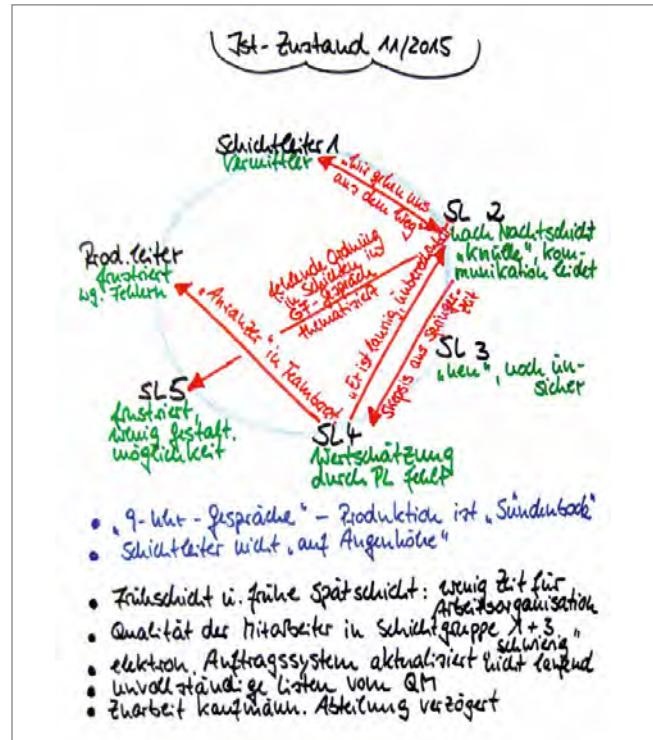 Ist-Zustand 11/2015
Schichtleiter 1
Vermittler
„Wir gehen uns
aus dem Weg"
SL 2
nach Nachtschicht
„knülle", kom-
munikation leidet
Prod.leiter
frustriert
wg. Fehlern
fehlende Ordnung
in Schichten ist
GF-Gespräch
thematisiert
„Anranzer" in Teamboard
„Er ist launig,
Skepsis aus Springer-
zeit
SL 3
„neu", noch un-
sicher
SL5
frustriert,
wenig gestalt.
möglichkeit
SL4
Wertschätzung
durch PL fehlt
• „9-Uhr-Gespräche" – Produktion ist „Sündenbock"
• Schichtleiter nicht „auf Augenhöhe"
• Frühschicht u. frühe Spätschicht: wenig Zeit für
Arbeitsorganisation
• Qualität der Mitarbeiter in Schichtgruppe 1+3
„schwierig"
• elektron. Auftragssystem aktualisiert nicht laufend
• unvollständige Listen vom QM
• Zuarbeit kaufmänn. Abteilung verzögert